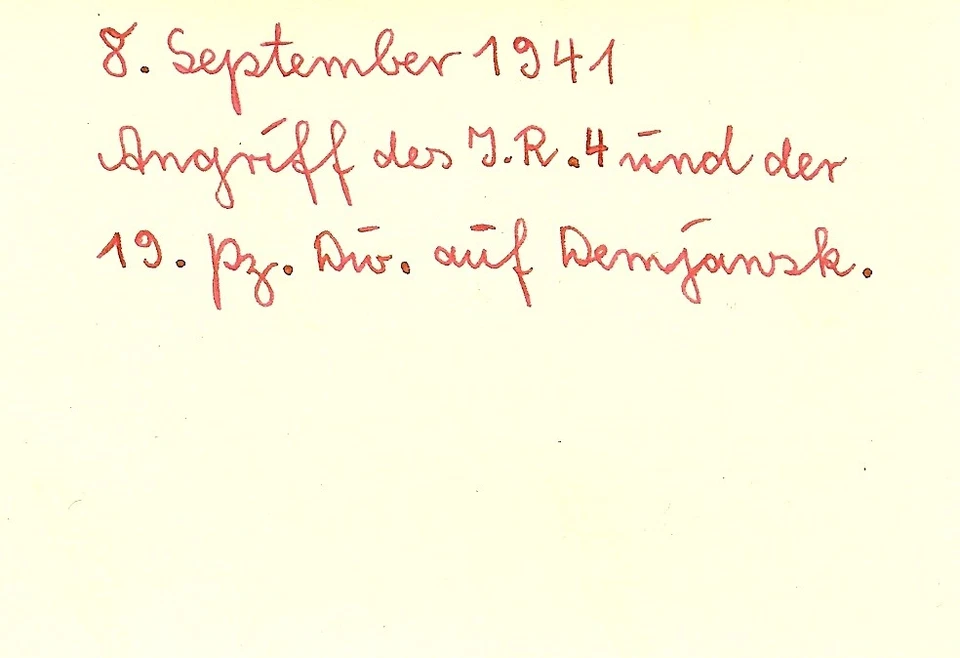 8. September 1941
Angriff des J.R.4 und der
19. Pz. Div. auf Demjansk.